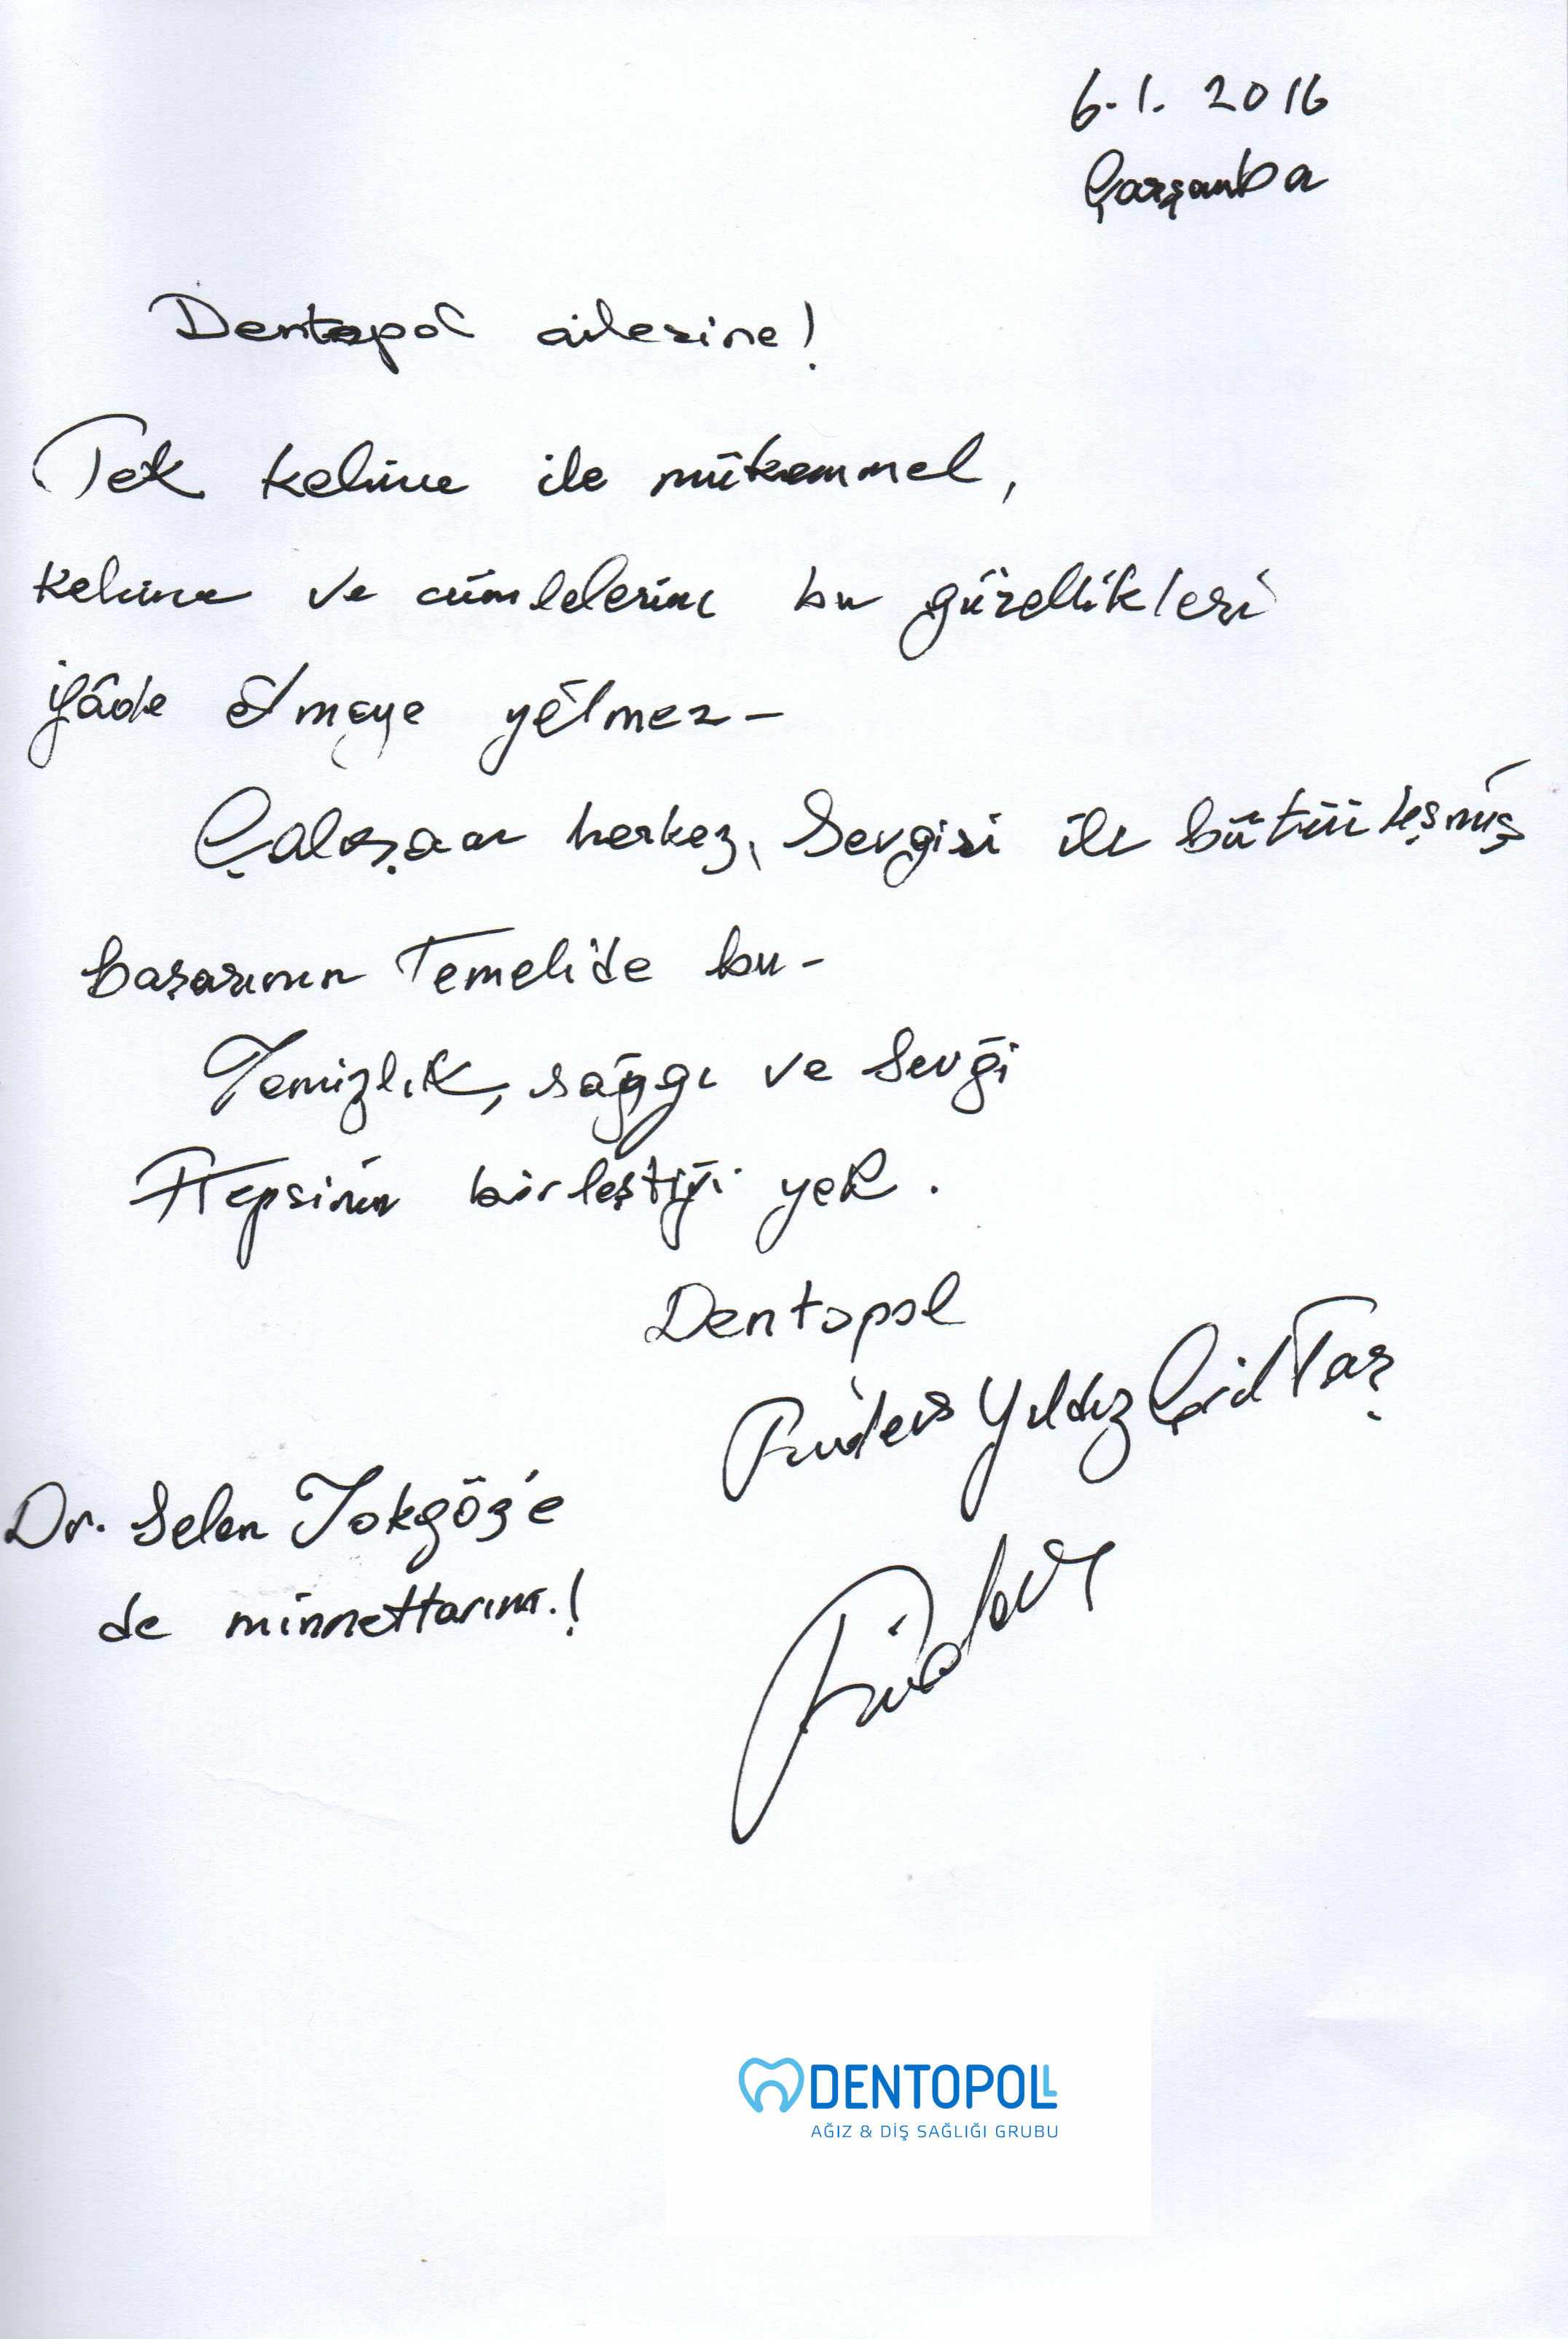 6.1.2016
Çarşamba
Dentopol ailesine!
Tek kelime ile mükemmel,
kelime ve cümlelerim bu güzellikleri
ifâde etmeye yetmez-
Çalışan herkez, sevgisi ile bütünleşmiş
başarının Temeli'de bu-
Temizlik, saygı ve sevği
Hepsinin birleştiği yer.
Dentopol
Yıldız
Dr. Selen Tokgöz'e
de minnettarım.!
DENTOPOLL
AĞIZ & DİŞ SAĞLIĞI GRUBU